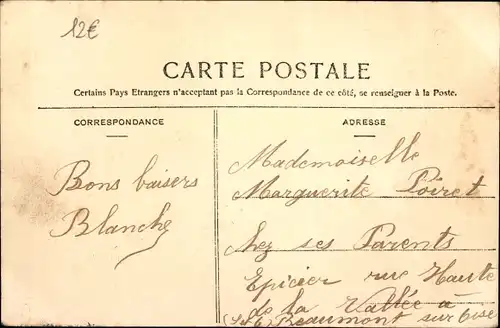 12€
CARTE POSTALE
Certains Pays Etrangers n'acceptant pas la Correspondance de ce côté, se renseigner à la Poste.
CORRESPONDANCE
Bons baisers
Blanche
ADRESSE
Mademoiselle
Marguerite Poiret
chez ses Parents
Epicier rue Haute
de la Vallée à
(S et O) Beaumont sur Oise